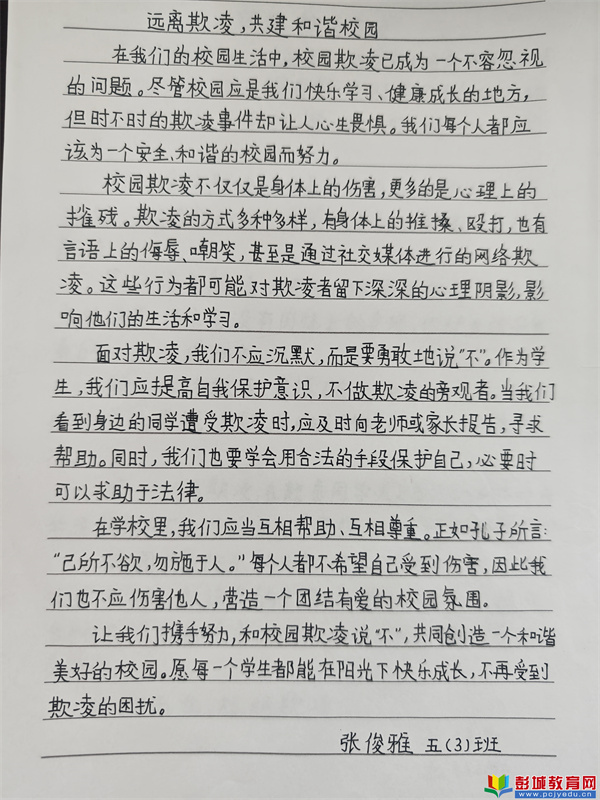 远离欺凌,共建和谐校园
在我们的校园生活中,校园欺凌已成为一个不容忽视
的问题。尽管校园应是我们快乐学习、健康成长的地方,
但时不时的欺凌事件却让人心生畏惧。我们每个人都应
该为一个安全、和谐的校园而努力。
校园欺凌不仅仅是身体上的伤害,更多的是心理上的
摧残。欺凌的方式多种多样,有身体上的推搡、殴打,也有
言语上的侮辱、嘲笑,甚至是通过社交媒体进行的网络欺
凌。这些行为都可能对欺凌者留下深深的心理阴影,影
响他们的生活和学习。
面对欺凌,我们不应沉默,而是要勇敢地说“不”。作为学
生,我们应提高自我保护意识,不做欺凌的旁观者。当我们
看到身边的同学遭受欺凌时,应及时向老师或家长报告,寻求
帮助。同时,我们也要学会用合法的手段保护自己,必要时
可以求助于法律。
在学校里,我们应当互相帮助、互相尊重。正如孔子所言:
“己所不欲,勿施于人。”每个人都不希望自己受到伤害,因此我
们也不应伤害他人,营造一个团结有爱的校园氛围。
让我们携手努力,和校园欺凌说“不”,共同创造一个和谐
美好的校园。愿每一个学生都能在阳光下快乐成长,不再受到
欺凌的困扰。
张俊雅 五(3)班
彭城教育网
www.pcjyedu.cn